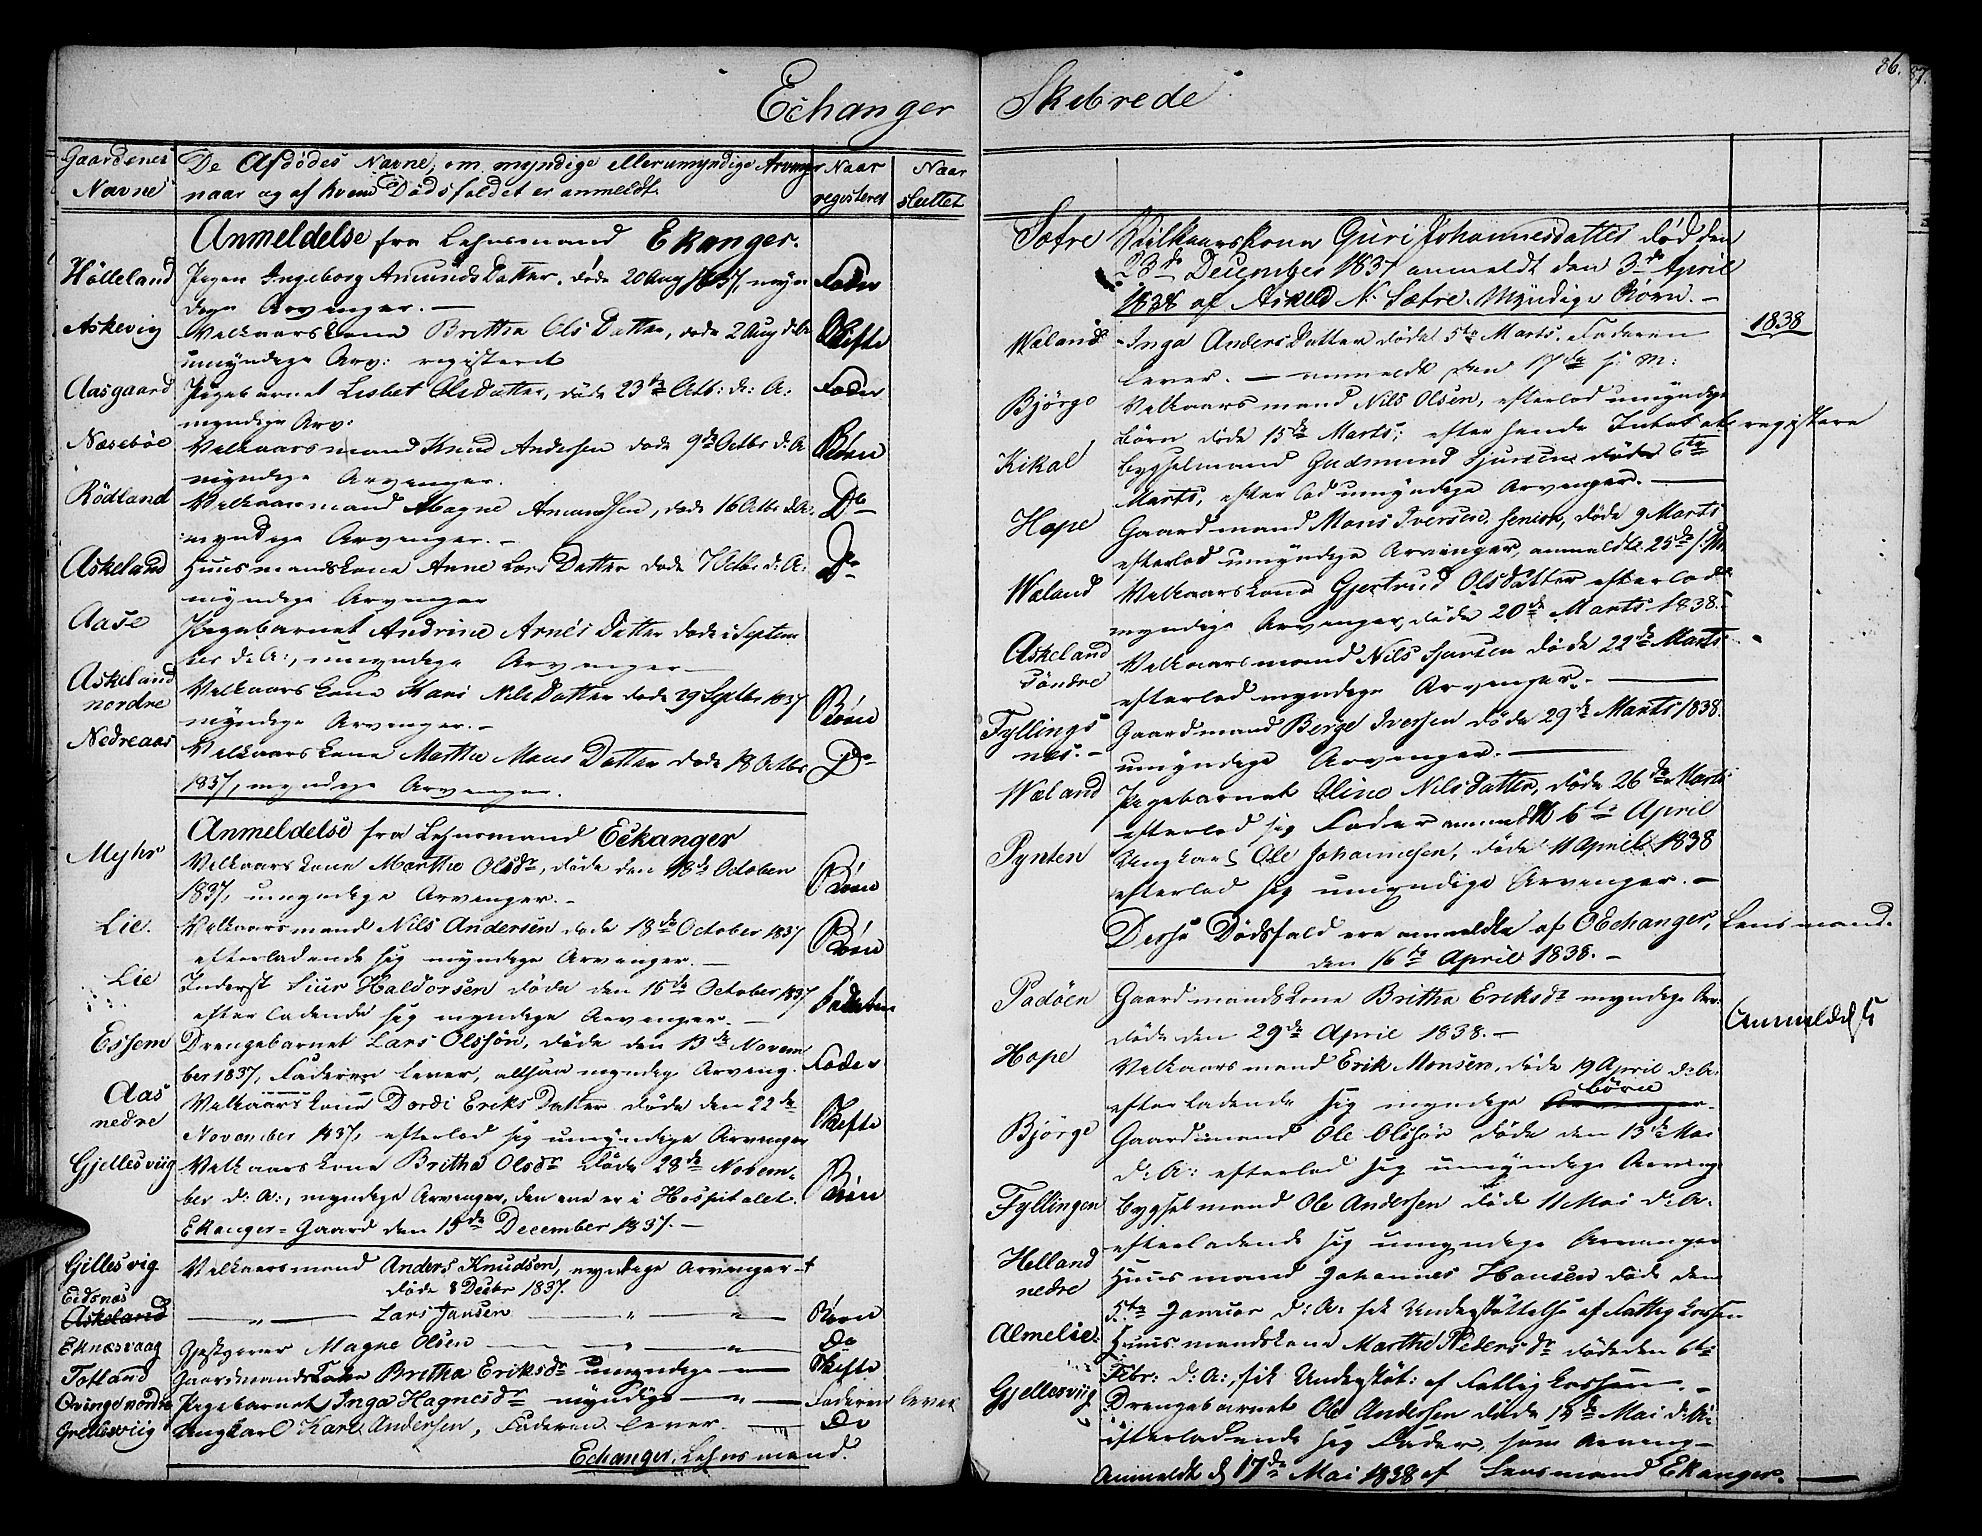 Echanger
Gaardenes Navne
De Afdødes Navne, om myndige eller umyndige Arvinger
naar og af hvem Dødsfaldet er anmeldt.
Naar registeret
Naar sluttet
Anmeldelse fra Lehnsmand Ekanger.
Hølleland Pigen Ingeborg Amunds Datter, døde 20 Aug 1837, myn Fader
dige Arvenger. —
Askevig Velkaarskone Brithe Ols Datter, døde 2 Aug d: A: Skifte
umyndige Arv: registeret
Aasgaard Pigebarnet Lisbet Ols Datter, døde 23de Octb: d: A: Fader
myndige Arv:
Næsebøe Velkaarsmand Knud Andersen døde 9de Octbr d: A Børn
myndige Arvenger.
Rödland Velkaarsmand Magne Amundsen, døde 16 Octbr d: A: Do
myndige Arvenger. —
Askeland Huusmandskone Anne Lars Datter døde 7 Octbr d: A: Do
myndige Arvenger
Aase Pigebarnet Andrine Arnes Datter døde i Septem
ber d: A:, umyndige Arvenger —
Askeland nordre Velkaarskone Kari Nils Datter døde 29 Septbr 1837 Børn
myndige Arvenger. —
Nedreaas Velkaarskone Martha Mons Datter døde 18 Octbr Do
1837, myndige Arvenger.
Anmeldelse fra Lehnsmand Eckanger
Myhr Velkaarskone Marthe Olsdr, døde den 18de October Børn
1837, umyndige Arvenger. —
Lie. Velkaarsmand Nils Andersen døde 18de October 1837 Børn
efterladende sig myndige Arvenger. —
Lie Inderst Siur Haldorsen døde den 15de October 1837
efterladende sig myndige Arvenger. —
Essem Drengebarnet Lars Olssøn, døde den 13de Novem Fader
ber 1837, Faderen lever, altsaa myndig Arving.
Aas nedre Velkaarskone Dordi Eriks Datter døde den 22de Skifte
November 1837, efterlod sig umyndige Arvenger
Gjellesviig Velkaarskone Britha Olsdr døde 28de Novem- Børn
ber d: A:, myndige Arvenger, den ene er i Hospitalet.
Ekanger-Gaard den 15de December 1837. —
Gillesvig Velkaarsmand Anders Knudsen, myndige Arvinger —
døde 8 Decbr 1837.
Eidsnæs
Askeland — " — Lars Jansen — " — " — Børn
Eknæsvaag Giskgever Magne Olsen — " — Do
Totland Gaardmandskone Britha Eriksdr umyndige — Skifte
Qvinge nordre Pigebarnet Inga Hagnesdr myndige — " — Faderen lever
Gjellesviig Ungkarl Karl Andersen, Faderen lever — Do
Echanger, Lehnsmand.
Skibrede
86.
87.
Sætre Vilkaarskone Guri Johannesdatter død den
23de December 1837 anmeldt den 3de April
1838 af Askeld N. Sætre. Myndige Børn. —
1838
Wæland Inga Anders Datter døde 5te Marts. Faderen
lever. — anmeldt den 17de s: M:
Bjørge Velkaarsmand Nils Olsen, efterlod umyndige
Børn døde 15de Marts; efter sende Intet at registere
Kikal Bygselmand Gudmund Sjursen døde 6te
Marts, efterlod umyndige Arvenger. —
Hope Gaardmand Mons Iversen, senior, døde 9 Marts
efterlod umyndige Arvinger, anmeldte 25de s: M
Wæland Velkaarskone Gjertrud Olsdatter efterlod
myndige Arvenger, døde 20de Marts 1838.
Askeland söndre Velkaarsmand Nils Sjursen døde 22de Marts
efterlod myndige Arvenger. —
Fyllingsnes. — Gaardmand Berge Iversen døde 29de Marts 1838.
umyndige Arvenger. —
Wæland Pigebarnet Oline Nilsdatter, døde 26de Marts
efterlod sig Fader anmeldt 6te April
Pynten Ungkarl Ole Johannesen, døde 11 April 1838
efterlod sig umyndige Arvenger. —
Disse Dødsfald ere anmeldte af O Echanger, Lensmand.
den 16te April 1838. —
Padøen Gaardmandskone Britha Eriksdr myndige Arv.
døde den 29de April 1838. —
Anmeldelse
Hope Velkaarsmand Erik Monsen, døde 19 April d: A:
efterladende sig myndige Arvenger. Børn
Bjørge Gaardsmand Ole Olssøn døde den 13de Mai
d: A: efterlod sig umyndige Arveng
Fyllingen Bygselmand Ole Andersen døde 11 Mai d: A:
efterladende sig umyndige Arvenger
Helland nedre Huusmand Johannes Hansen døde den
5te Januar d: A: fik Understöttelse af Fattigkassen
Almelie: Huusmandskone Marthe Pedersdr døde den 6te
Febr: d: A:, fik Understöt: af Fattigkassen. —
Gjellesviig Drengebarnet Ole Andersen døde 14de Mai d: A:
efterladende sig Fader, som Arveng —
Anmeldt d 17de Mai 1838 af Lensmand Ekanger. —